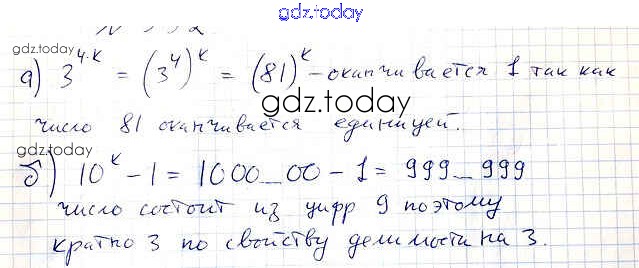 gdz.today
gdz.today
а) 3^{4·k} = (3^4)^k = (81)^k – оканчивается 1 так как
gdz.today
число 81 оканчивается единицей.
gdz.today
б) 10^k - 1 = 1000_00 - 1 = 999_999
число состоит из цифр 9 поэтому
кратно 3 по свойству делимости на 3.